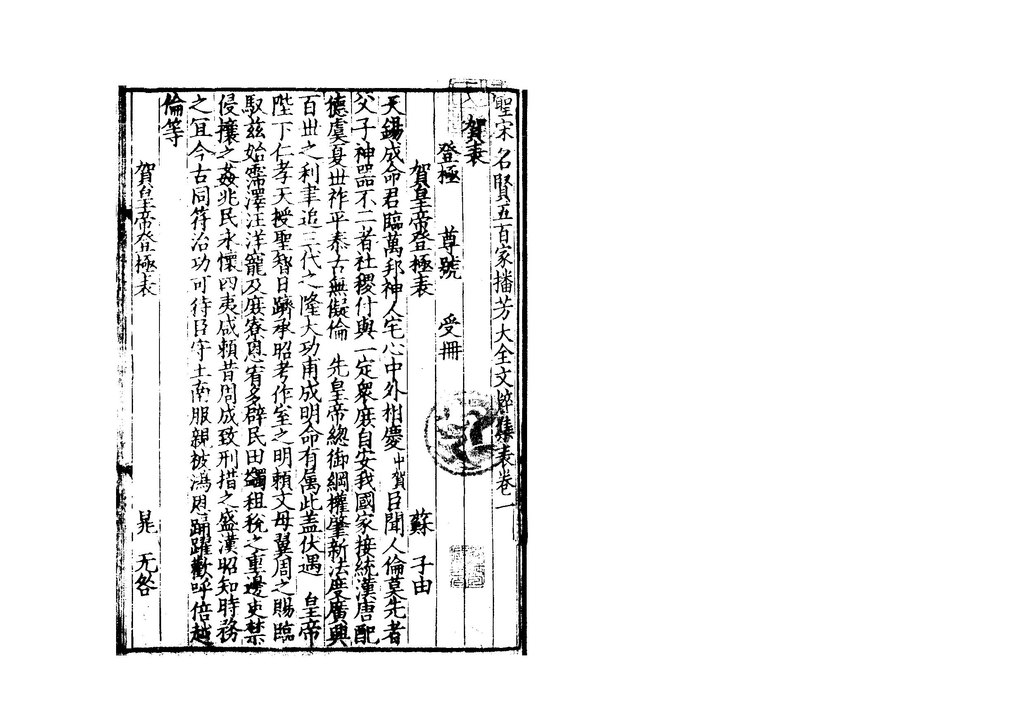 聖宋名賢五百家播芳大全文粹集表卷一
賀表
登極 尊號 受冊
賀皇帝登極表 蘇子由
天錫成命君臨萬邦神人宅心中外相慶中賀臣聞人倫莫先者
父子神器不二者社稷付與一定衆庶自安我國家接統漢唐配
德虞夏世祚平泰古無儗倫 先皇帝總御綱權肇新法度廣興
百世之利聿追三代之隆大功甫成明命有属此盖伏遇 皇帝
陛下仁孝天授聖智日躋承昭考作室之明頼文母翼周之賜臨
馭茲始霈澤汪洋寵及庶寮恩宥多辟民田蠲租稅之重邊吏禁
侵攘之姦兆民永懷四夷咸頼昔周成致刑措之盛漢昭知時務
之冝今古同符治功可待臣守土南服親被鴻恩踊躍歡呼倍越
倫等
賀皇帝登極表 晁无咎